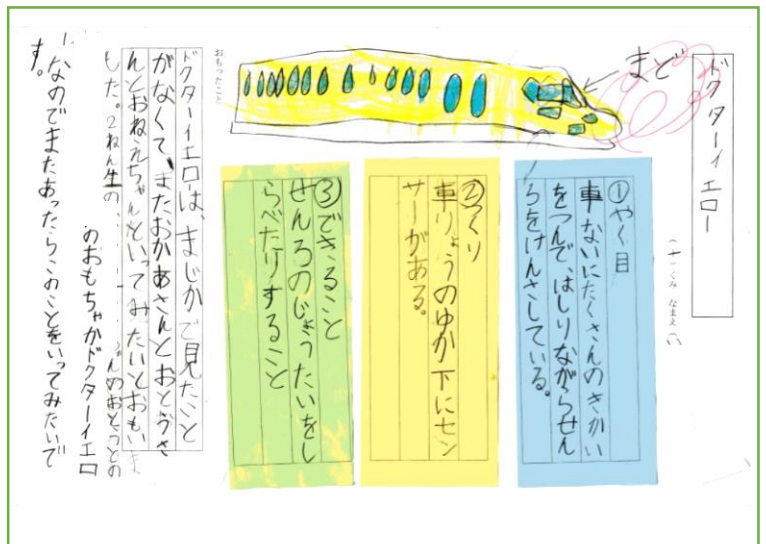 ドクターイエロー
くみ なまえ
まど
①やく目
車ないにたくさんのきかい
をつんで、はしりながらせん
ろをけんさしている。
②つくり
車りょうのゆか下にセン
サーがある。
③できること
せんろのじょうたいをし
らべたりすること
おもったこと
ドクターイエローは、まじかで見たこと
がなくて、またおかあさんとおとうさ
んとおねえちゃんといってみたいとおもいま
した。2ねん生の
んのおとうとの
のおもちゃがドクターイエロ
ーなのでまたあったらこのことをいってみたいで
す。